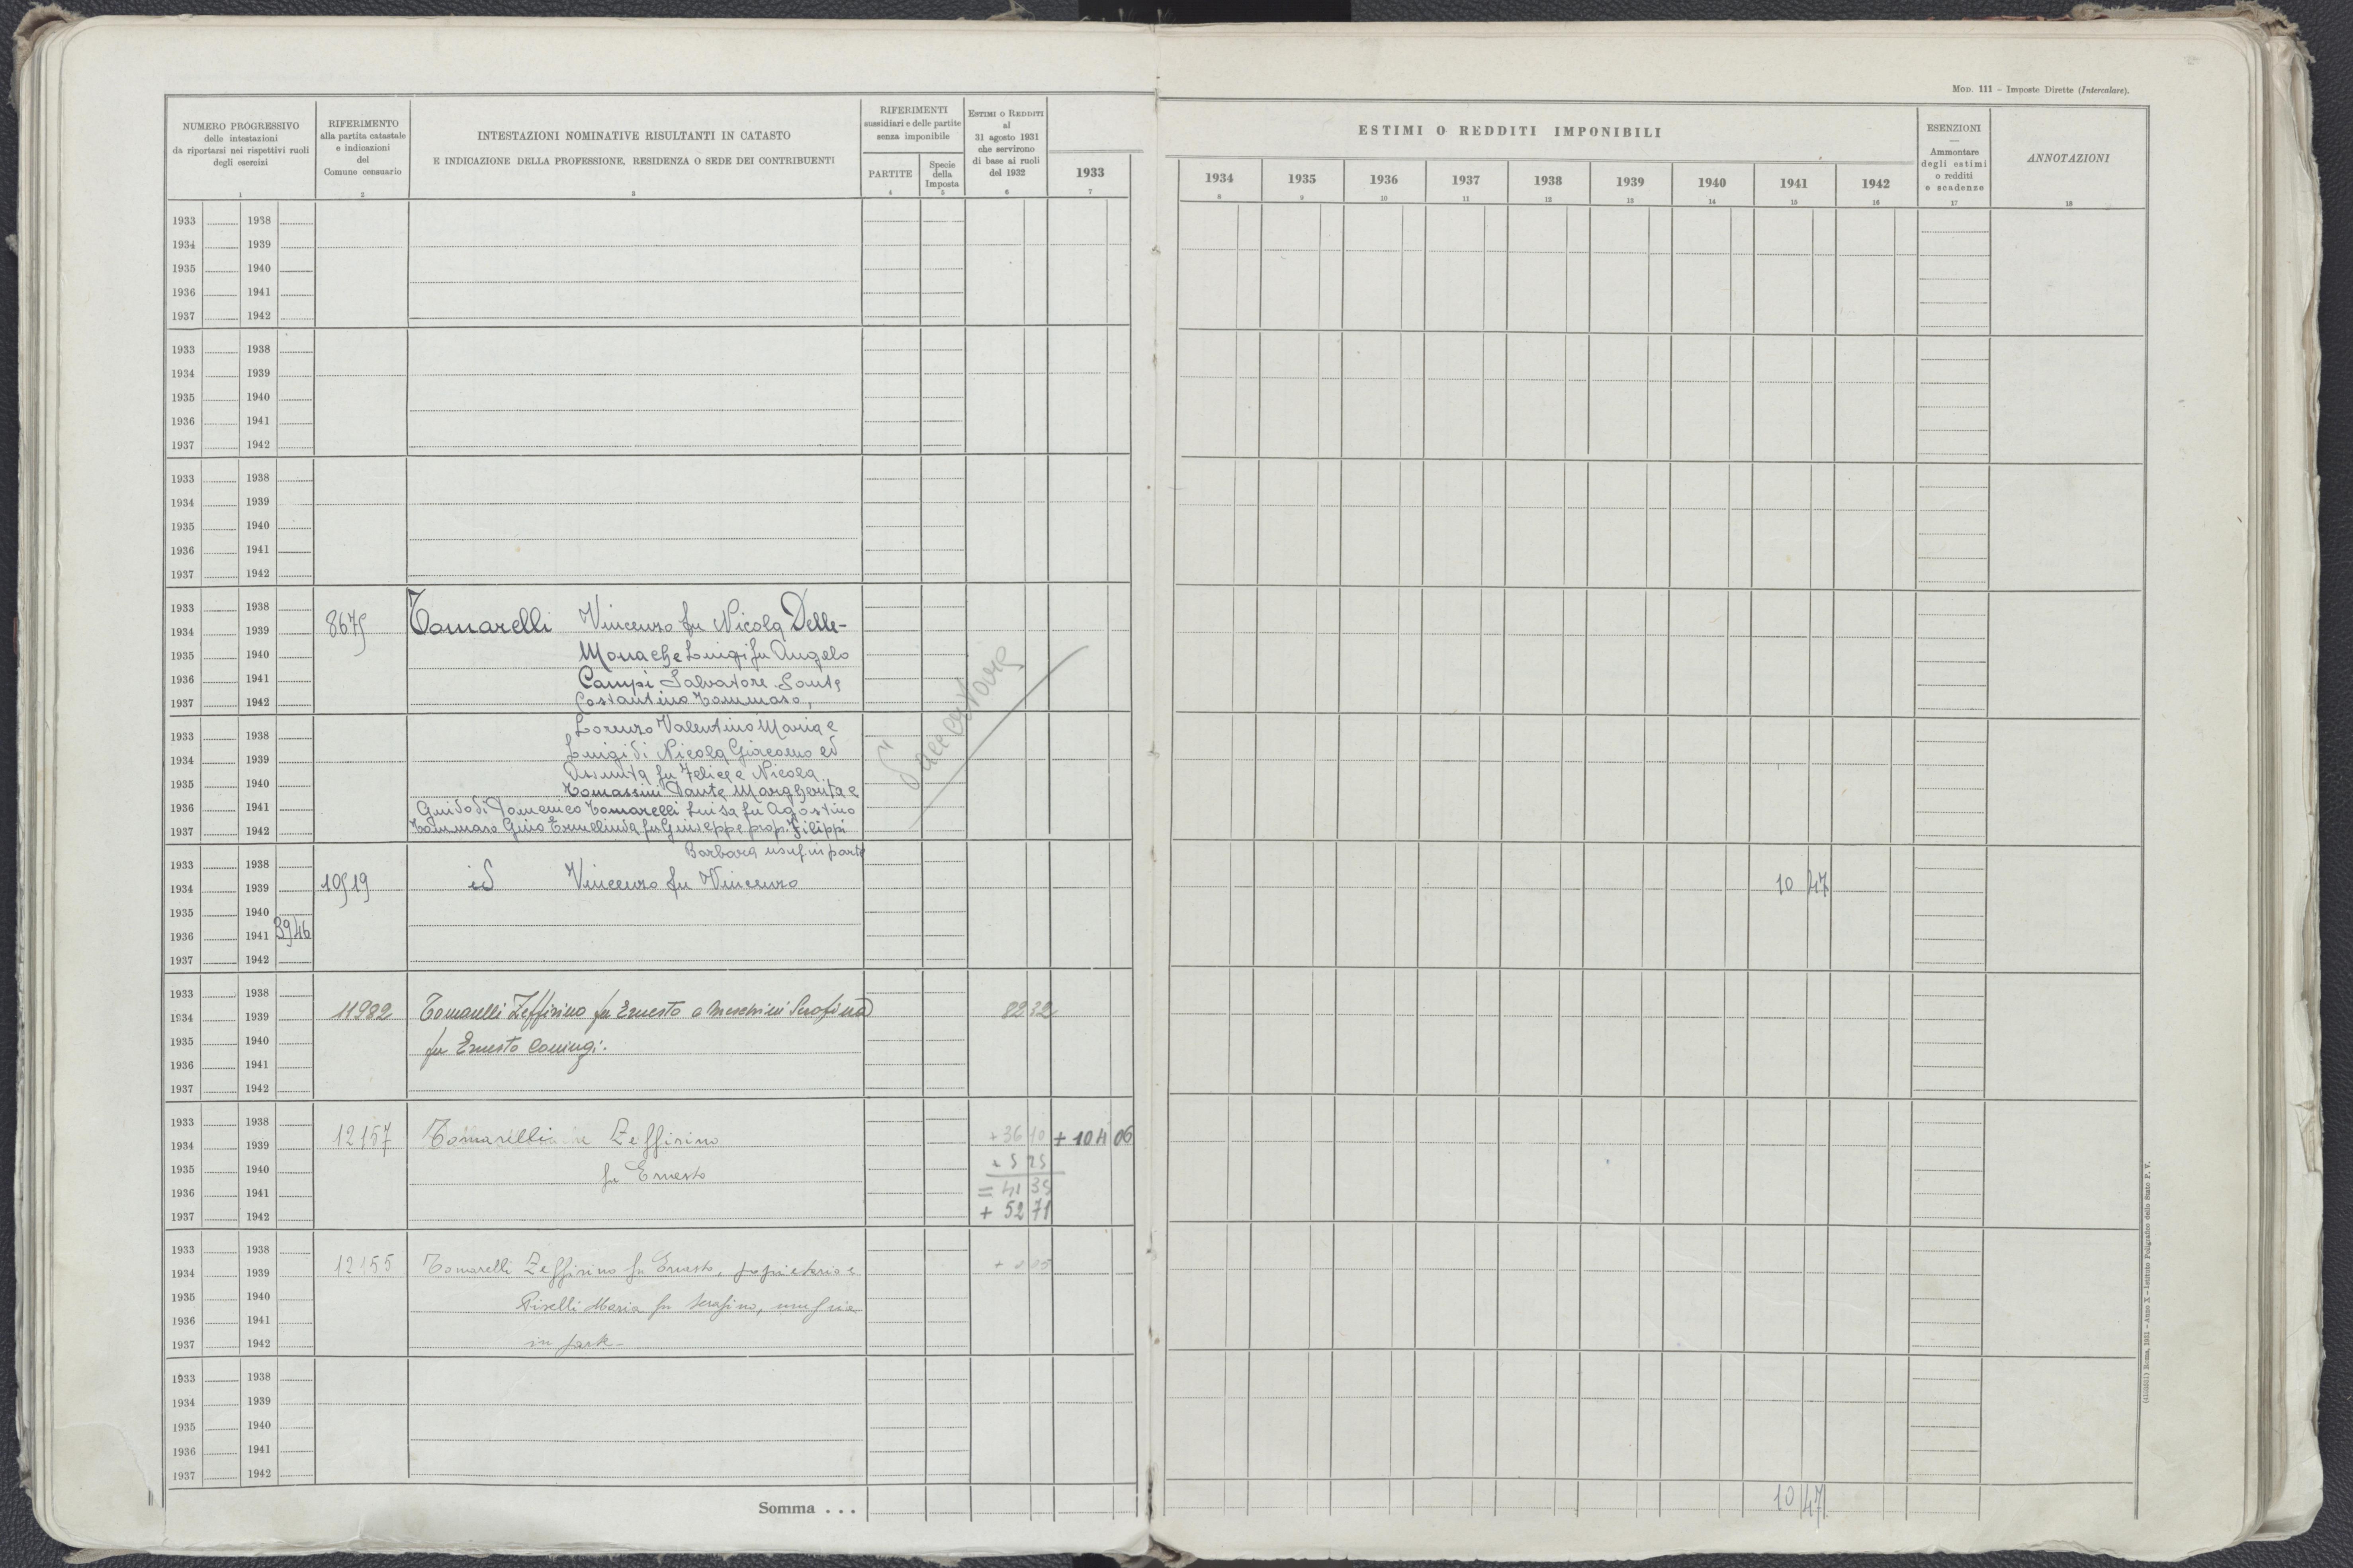 Mod. 111 – Imposte Dirette (Intercalare).
NUMERO PROGRESSIVO
delle intestazioni
da riportarsi nei rispettivi ruoli
degli esercizi
1
RIFERIMENTO
alla partita catastale
e indicazioni
del
Comune censuario
2
INTESTAZIONI NOMINATIVE RISULTANTI IN CATASTO
E INDICAZIONE DELLA PROFESSIONE, RESIDENZA O SEDE DEI CONTRIBUENTI
3
RIFERIMENTI
sussidiari e delle partite
senza imponibile
PARTITE
4
Specie
della
Imposta
5
Estimi o Redditi
al
31 agosto 1931
che servirono
di base ai ruoli
del 1932
6
1933
7
ESTIMI O REDDITI IMPONIBILI
1934 1935 1936 1937 1938 1939 1940 1941 1942
8 9 10 11 12 13 14 15 16
ESENZIONI
—
Ammontare
degli estimi
o redditi
e scadenze
17
ANNOTAZIONI
18
1933 1938
1934 1939
1935 1940
1936 1941
1937 1942
1933 1938
1934 1939
1935 1940
1936 1941
1937 1942
1933 1938
1934 1939
1935 1940
1936 1941
1937 1942
1933 1938
1934 1939 8675 Tomarelli Vincenzo fu Nicola Delle-
1935 1940 Monache Luigi fu Angelo
1936 1941 Campi Salvatore Sante
1937 1942 Costantino Tommaso,
Lorenzo Valentino Maria e
1933 1938
1934 1939 Luigi di Nicola Giacomo ed
Assunta fu Felice e Nicola
1935 1940 Tomassini Dante Margherita e
1936 1941 Guido di Domenico Tomarelli Luisa fu Agostino
1937 1942 Tommaso Gino Ermellinda fu Giuseppe prop. Filippi
Barbara usuf. in parte
1933 1938
1934 1939 10519 id Vincenzo fu Vincenzo 10 47
1935 1940
1936 1941 3946
1937 1942
1933 1938
1934 1939 11982 Tomarelli Zeffirino fu Ernesto e Meschini Serafina 82 32
1935 1940 fu Ernesto coniugi.
1936 1941
1937 1942
1933 1938
1934 1939 12157 Tomarelli Zeffirino + 36 10 + 104 06
1935 1940 fu Ernesto + 5 25
1936 1941 = 41 35
1937 1942 + 52 71
1933 1938
1934 1939 12155 Tomarelli Zeffirino fu Ernesto, proprietario e
1935 1940 Piselli Maria fu Serafino, usufr.ia
1936 1941
1937 1942 in parte
1933 1938
1934 1939
1935 1940
1936 1941
1937 1942
Somma . . . 10 47
Roma, 1931 – Anno X – Istituto Poligrafico dello Stato P. V.